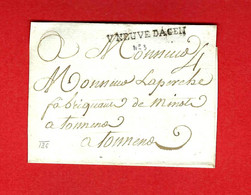 V.NEUVE DAGEN
A Monsieur
Monsieur Laperche
fabriquant de minots
a tonneins
a tonneins